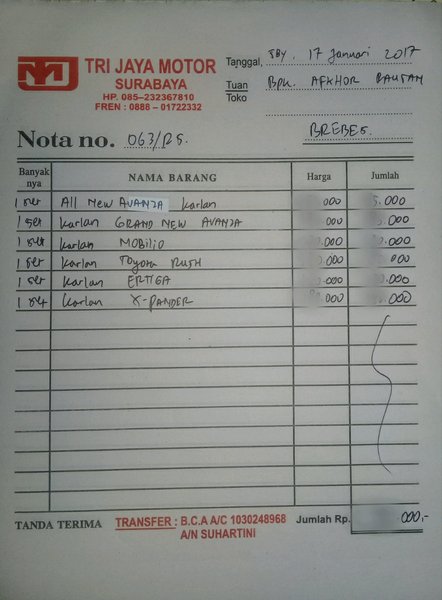 TRI JAYA MOTOR
SURABAYA
HP. 085-232367810
FREN : 0888 - 01722332
Tanggal, SBY. 17 Januari 2017
Tuan
Toko
Bpk. AFKHOR
BREBES.
Nota no. 063/RS.
Banyak nya NAMA BARANG Harga Jumlah
1 set All New AVANZA karlan 000 .000
1 set karlan GRAND NEW AVANZA 000 .000
1 set karlan MOBILIO .000 .000
1 set karlan Toyota RUSH .000 000
1 set karlan ERTIGA .000 .000
1 set karlan X-PANDER 000 .000
TANDA TERIMA TRANSFER : B.C.A A/C 1030248968 Jumlah Rp. 000,-
A/N SUHARTINI